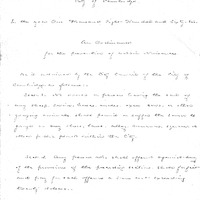 City of Cambridge
In the year One Thousand Eight Hundred and Sixty-
An Ordinance
for the prevention of certain Nuisances
Be it ordained by the City Council of the City of
Cambridge as follows:
Sect. 1. No person having the care of
any sheep, swine, horses, oxen, cows, or other
grazing animals shall permit or suffer the same to
in any street, lane, alley, common, square or
other public within the City.
Sect. 2. Any person who shall offend against any
of the provisions of the preceding section shall forfeit
and pay for each offence a sum not exceeding
twenty dollars.